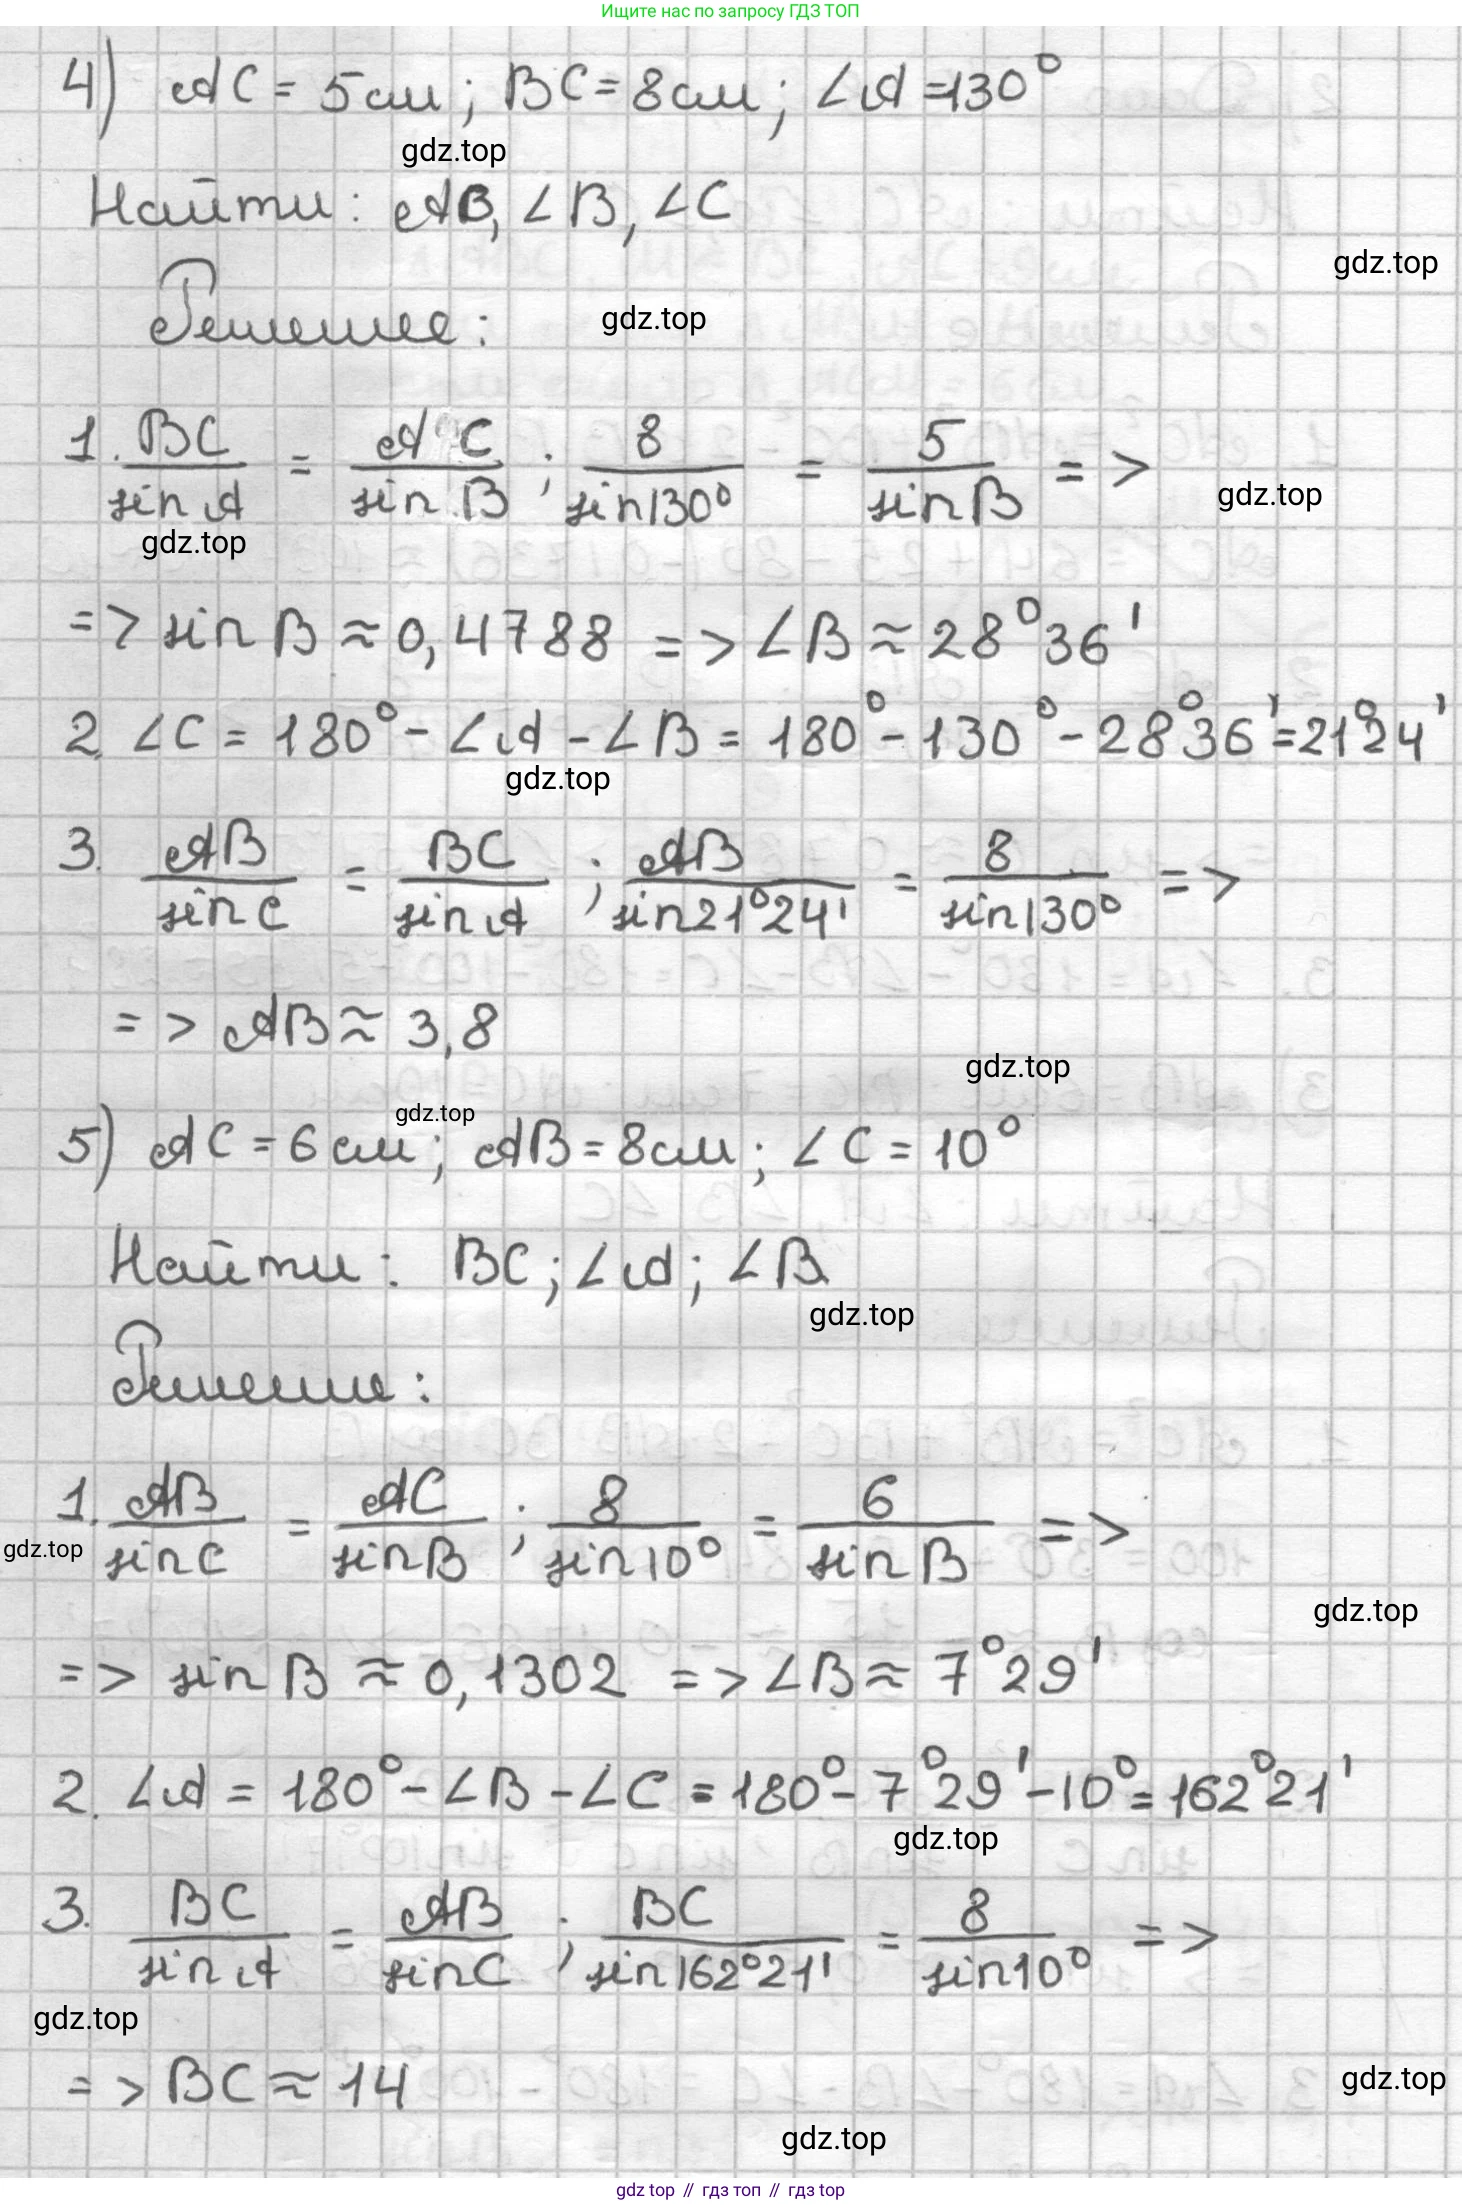 Ищите нас по запросу ГДЗ ТОП
4) AC = 5см; BC = 8см; ∠A = 130°
gdz.top
Найти: AB, ∠B, ∠C
gdz.top
Решение:
gdz.top
1. BC/sin A = AC/sin B; 8/sin130° = 5/sin B =>
gdz.top
gdz.top
=> sin B ≈ 0,4788 => ∠B ≈ 28°36'
2. ∠C = 180° - ∠A - ∠B = 180° - 130° - 28°36' = 21°24'
gdz.top
3. AB/sin C = BC/sin A; AB/sin21°24' = 8/sin130° =>
=> AB ≈ 3,8
gdz.top
gdz.top
5) AC = 6см; AB = 8см; ∠C = 10°
Найти: BC; ∠A; ∠B
gdz.top
Решение:
1. AB/sin C = AC/sin B; 8/sin10° = 6/sin B =>
gdz.top
gdz.top
=> sin B ≈ 0,1302 => ∠B ≈ 7°29'
2. ∠A = 180° - ∠B - ∠C = 180° - 7°29' - 10° = 162°21'
gdz.top
3. BC/sin A = AB/sin C; BC/sin162°21' = 8/sin10° =>
gdz.top
=> BC ≈ 14
gdz.top
gdz.top
gdz top // гдз топ // гдз top